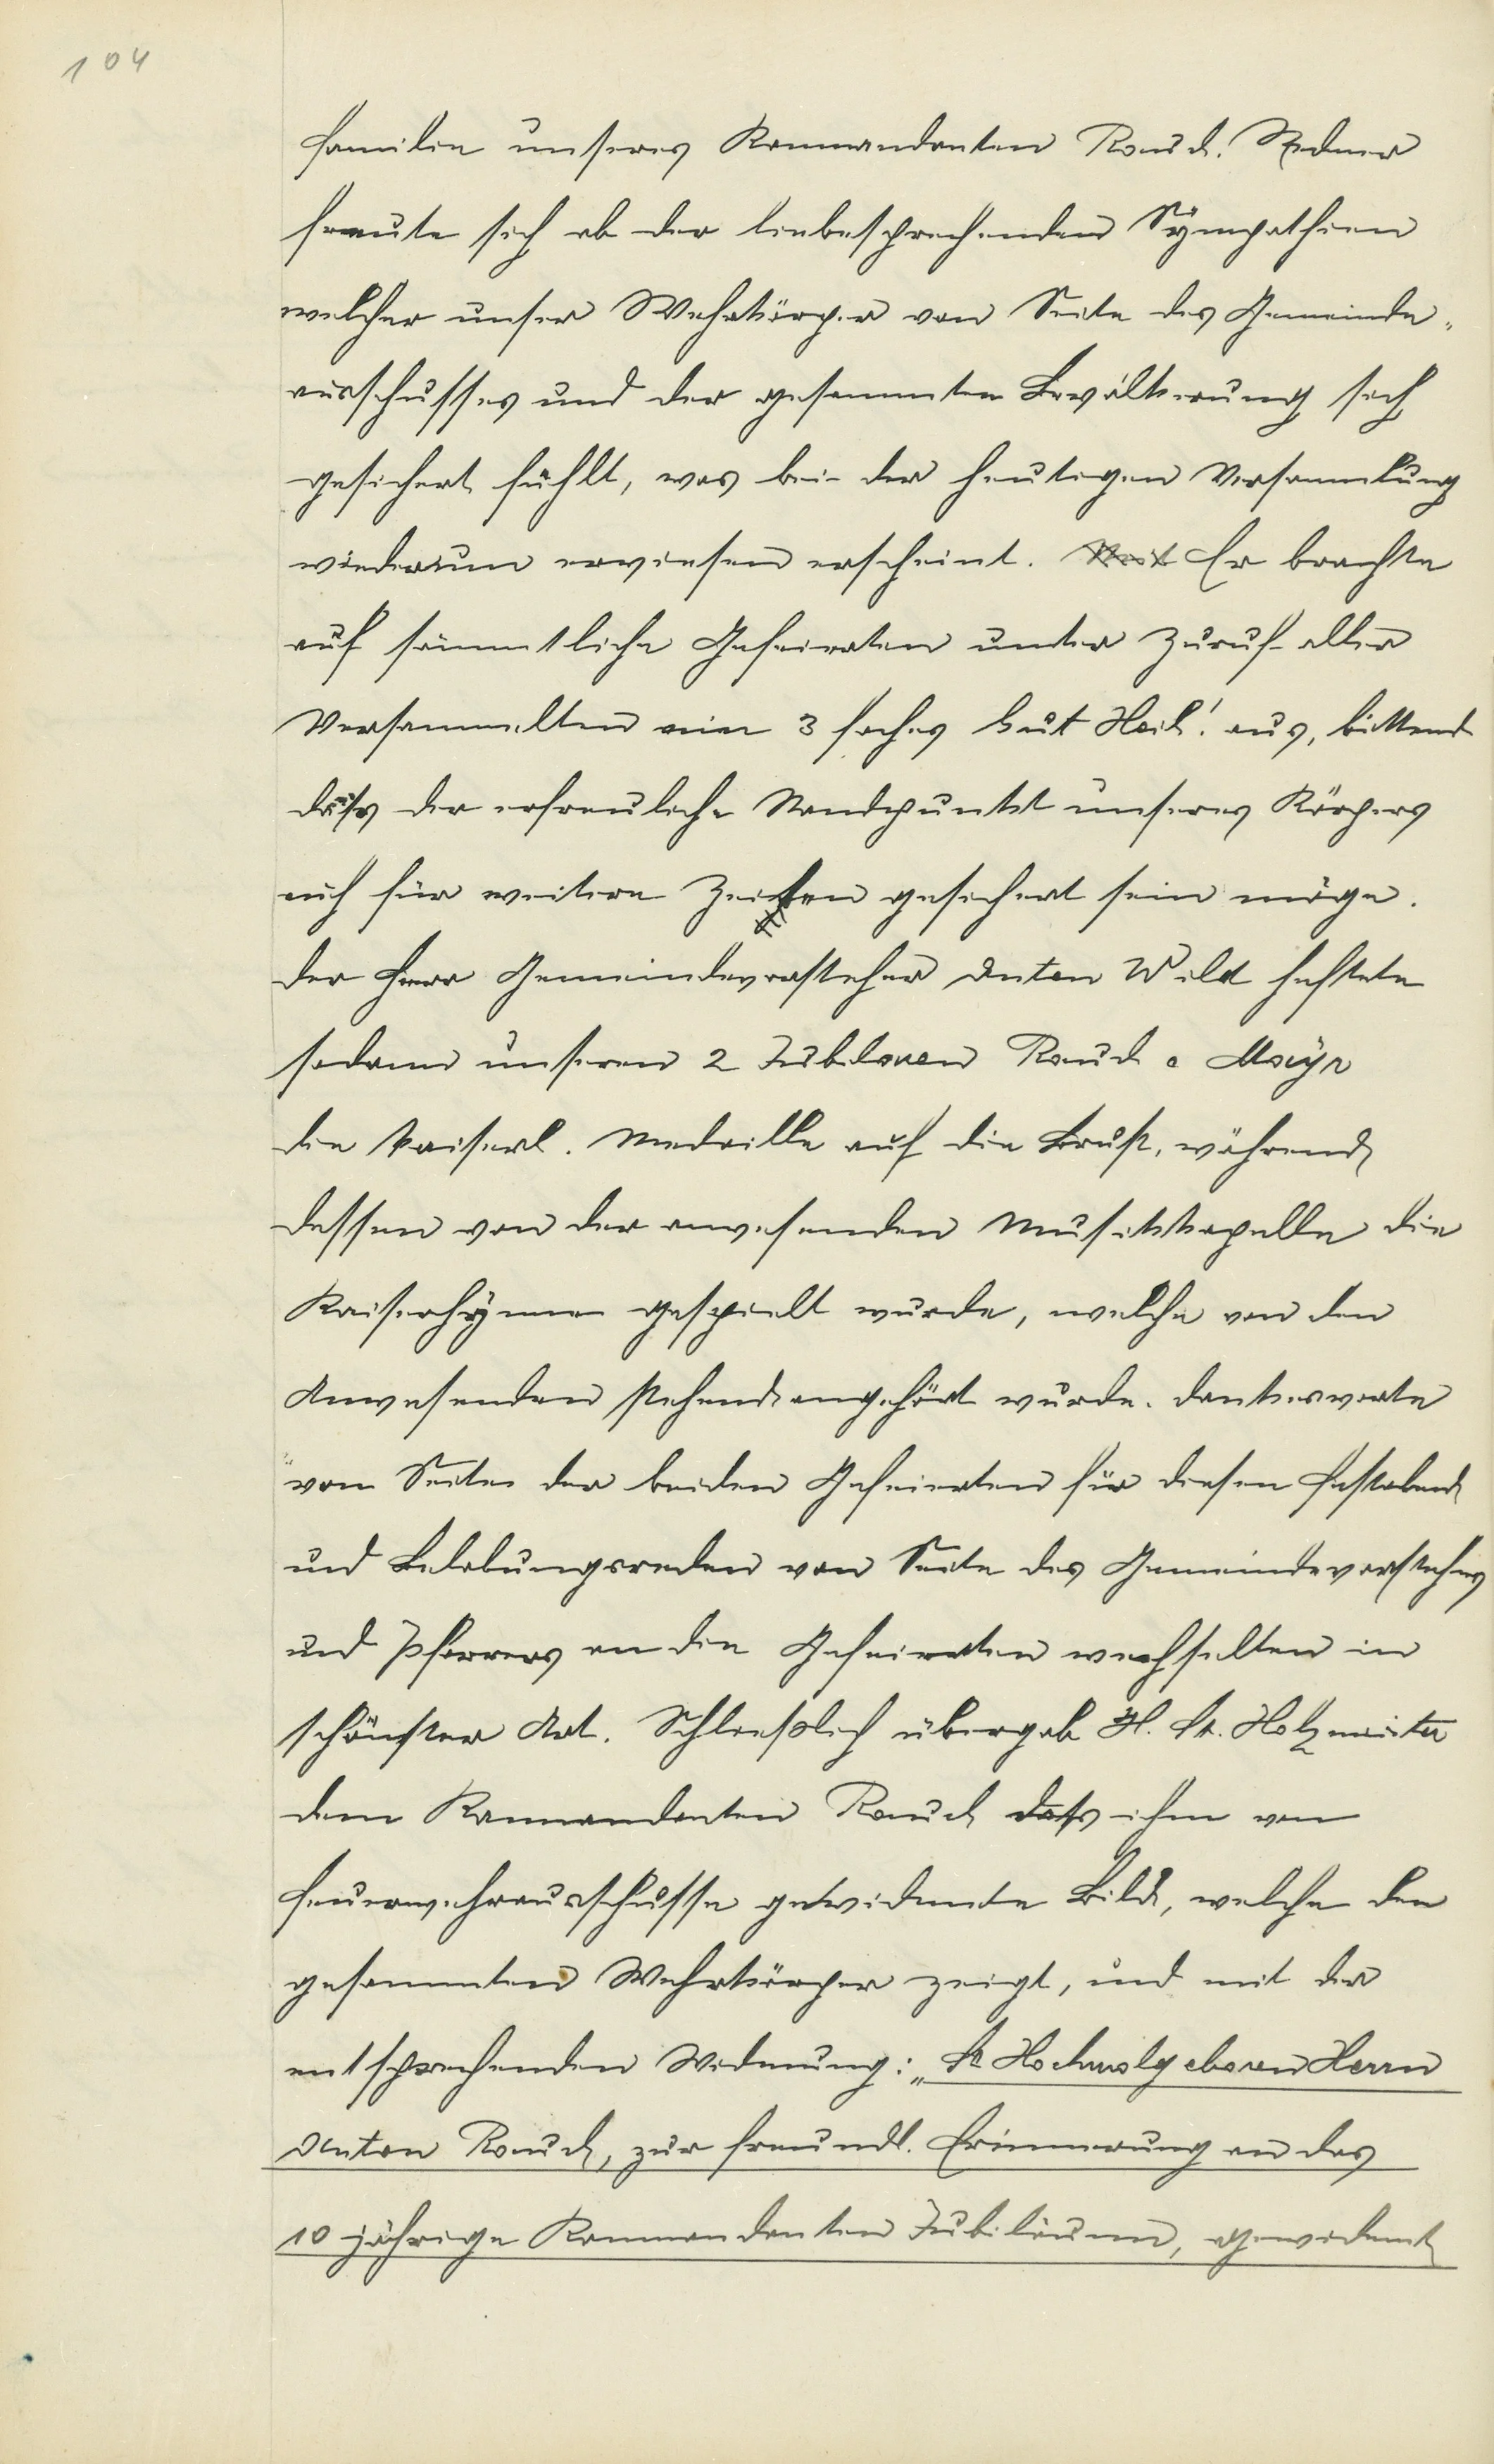 104
Familie unseres Kommandanten Rauch. Redner
freute sich ob der liebesprechenden Sympathien
welcher unser Wehrkörper von Seite des Gemeinde„
ausschusses und der gesammten Bevölkerung sich
gesichert fühlt, was bei der heutigen Versammlung
wiederum erwiesen erscheint. Er brachte
auf sämmtliche Gefeierten unter Zuruf aller
Versammelten ein 3 faches Gut Heil! aus, bittend
dass der erfreuliche Standpunkt unseres Körpers
auch für weitere Zeiten gesichert sein möge.
Der Herr Gemeindevorsteher Anton Wild heftete
sodann unseren 2 Jubilaren Rauch & Mayr
die kaiserl. Medaille auf die Brust, während
dessen von der anwesenden Musikkapelle die
Kaiserhymne gespielt wurde, welche von den
Anwesenden stehend angehört wurde. Dankesworte
von Seite der beiden Gefeierten für diesen Festabend
und Belobungsreden von Seite des Gemeindevorstehers
und Pfarrers an die Gefeierten wechselten in
schönster Art. Schliesslich übergab H. Holzmeister
dem Kommandanten Rauch dass ihm vom
Feuerwehrausschusse gewidmete Bild, welche den
gesammten Wehrkörper zeigt, und mit der
entsprechenden Widmung: „Sr Hochwolgeboren Herrn
Anton Rauch, zur freundl. Erinnerung an das
10 jährige Kommandanten Jubiläum, gewidmet